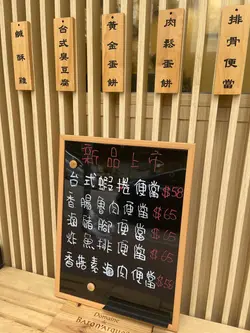 鹹酥雞
台式臭豆腐
黃金蛋餅
肉鬆蛋餅
排骨便當
新品上市。
台式蝦捲便當$58
香腸魯肉便當$65
滷豬腳便當$65
炸魚排便當$65
香菇素滷肉便當
Domaine
Baron'Arques